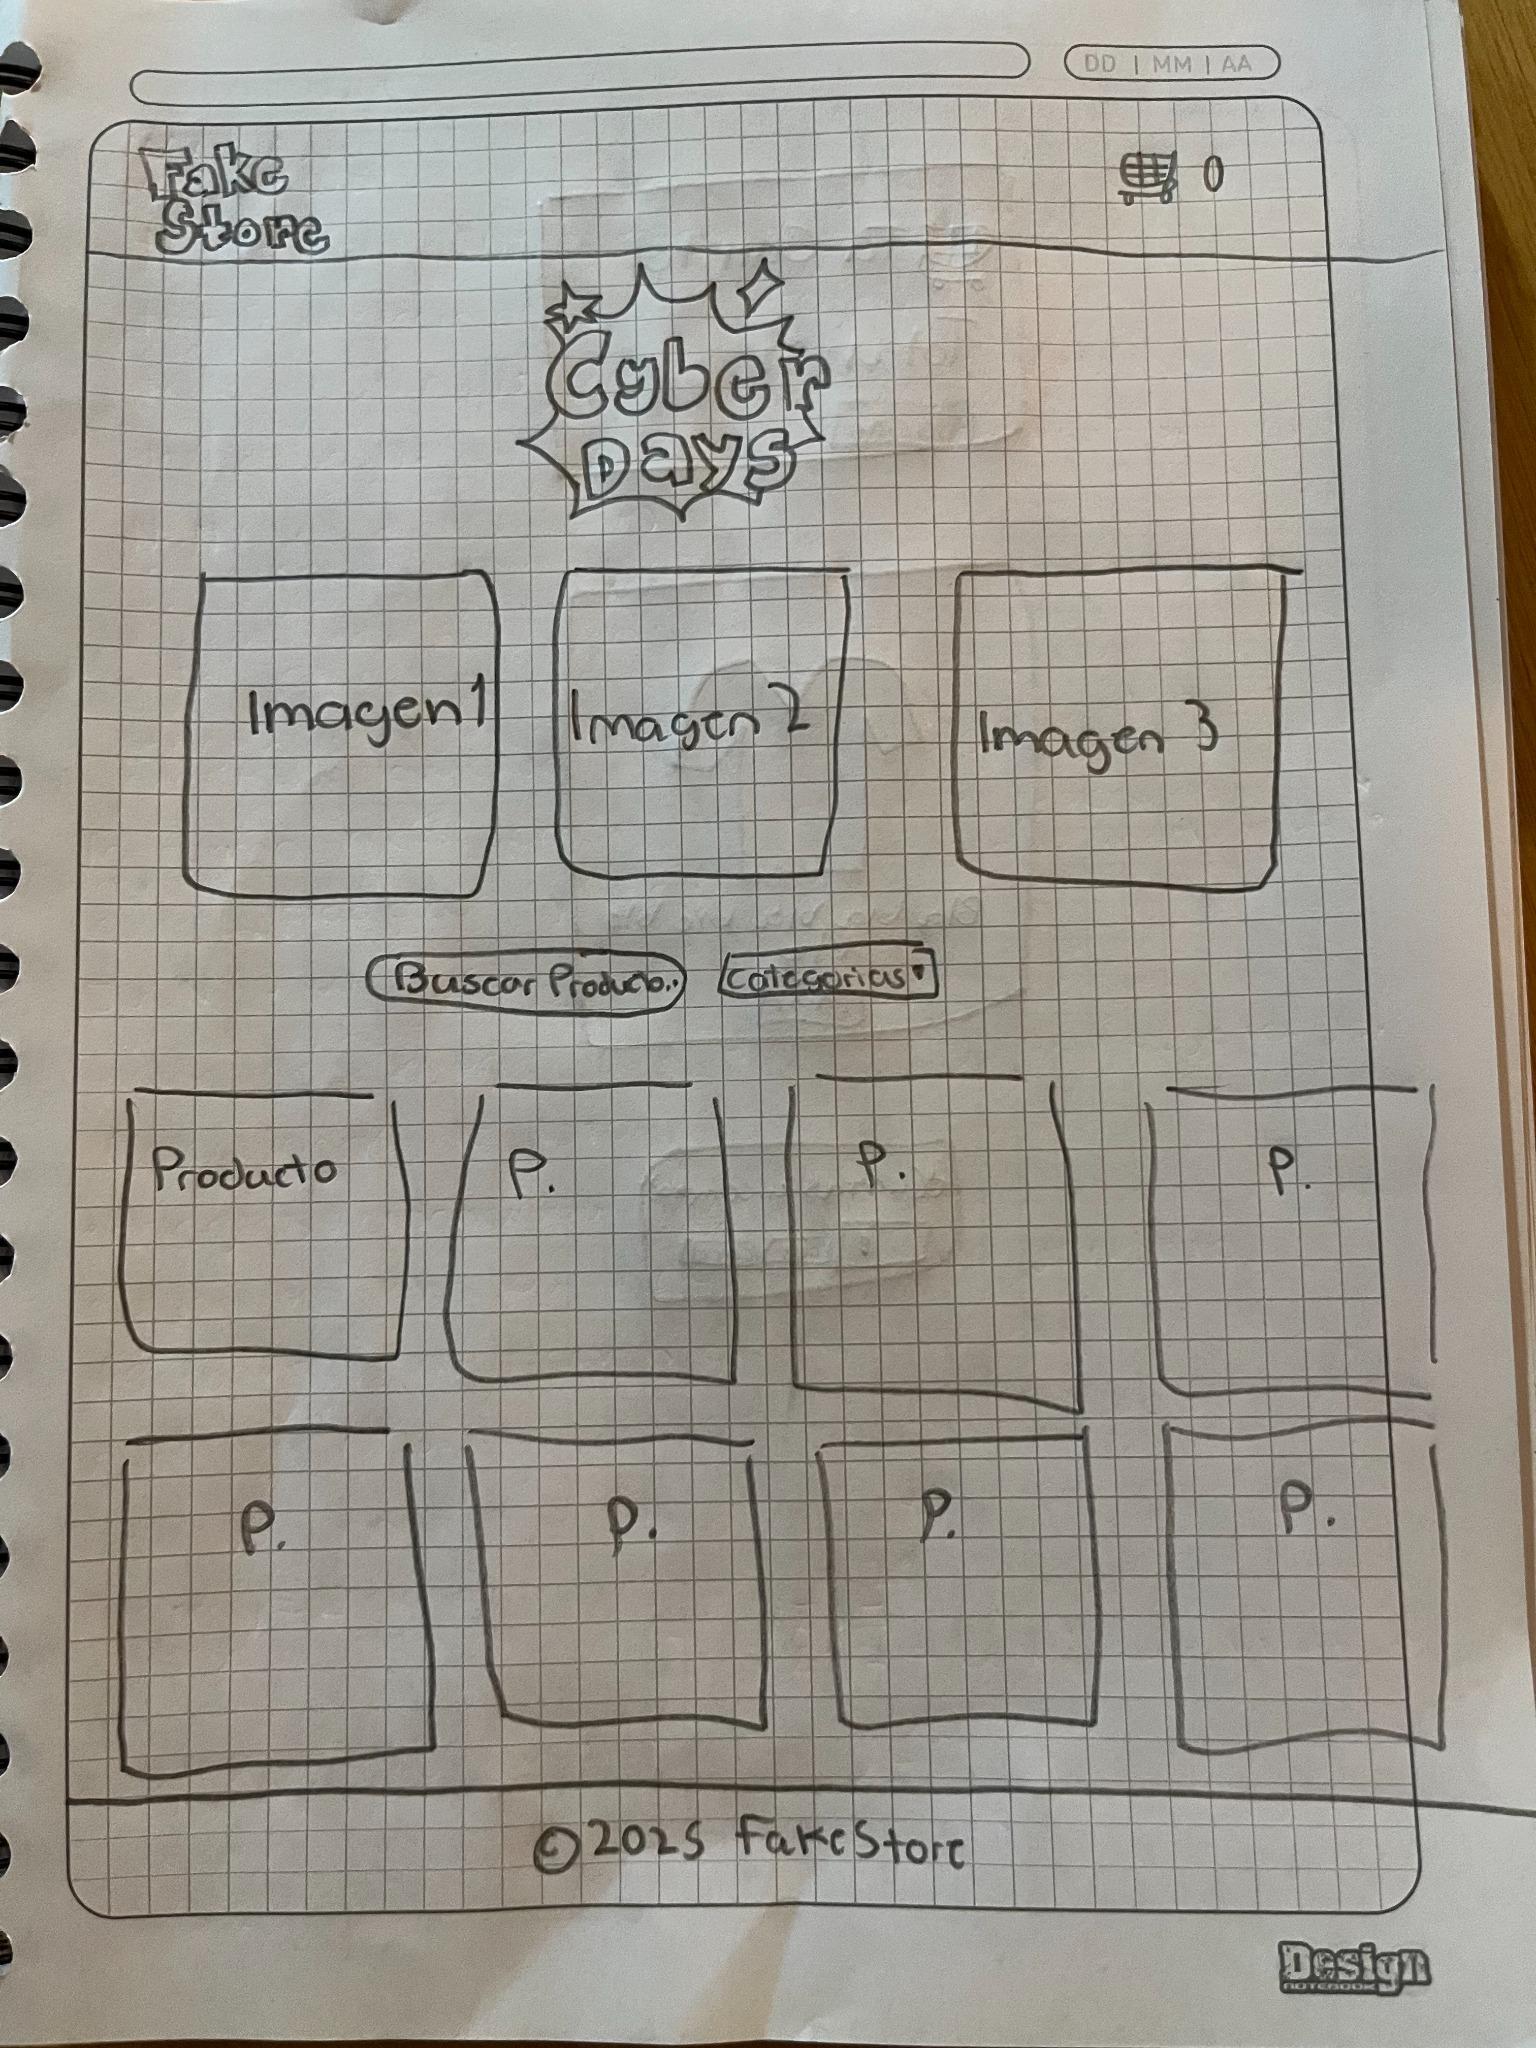 DD | MM | AA
Fake
Store
0
Cyber
Days
Imagen 1
Imagen 2
Imagen 3
Buscar Producto..
Categorias
Producto
P.
P.
P.
P.
P.
P.
P.
© 2025 FakeStore
Design
NOTEBOOK